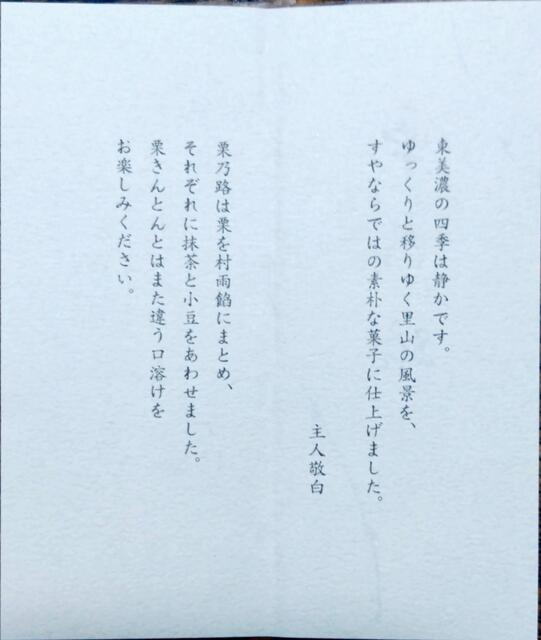 東美濃の四季は静かです。
ゆっくりと移りゆく里山の風景を、
すやならではの素朴な菓子に仕上げました。
主人敬白
栗乃路は栗を村雨餡にまとめ、
それぞれに抹茶と小豆をあわせました。
栗きんとんとはまた違う口溶けを
お楽しみください。